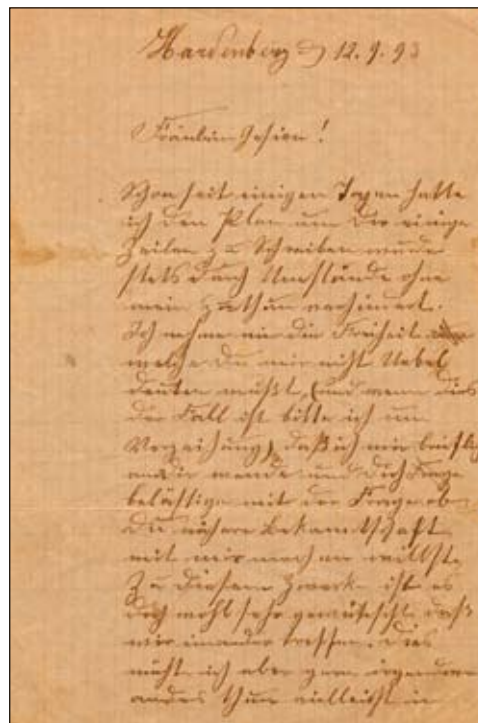 Hardenberg d 12.9.93
Fräulein !
Schon seit einigen Tagen hatte
ich den Plan um Dir einige
Zeilen zu Schreiben wurde
stets durch Umstände ohne
mein Zuthun verhindert.
Ich nehme mir die Freiheit
welche Du mir nicht Uebel
deuten mußt, (und wenn dies
der Fall ist bitte ich um
Verzeihung) daß ich mir brieflich
an dir wende und Dich
belästige mit der Frage ob
Du nähere Bekantschaft
mit mir machen willst.
Zu diesem Zweck ist es
doch wohl sehr daß
wir einander treffen. Dies
möcht ich aber gern
anders thun vielleicht in